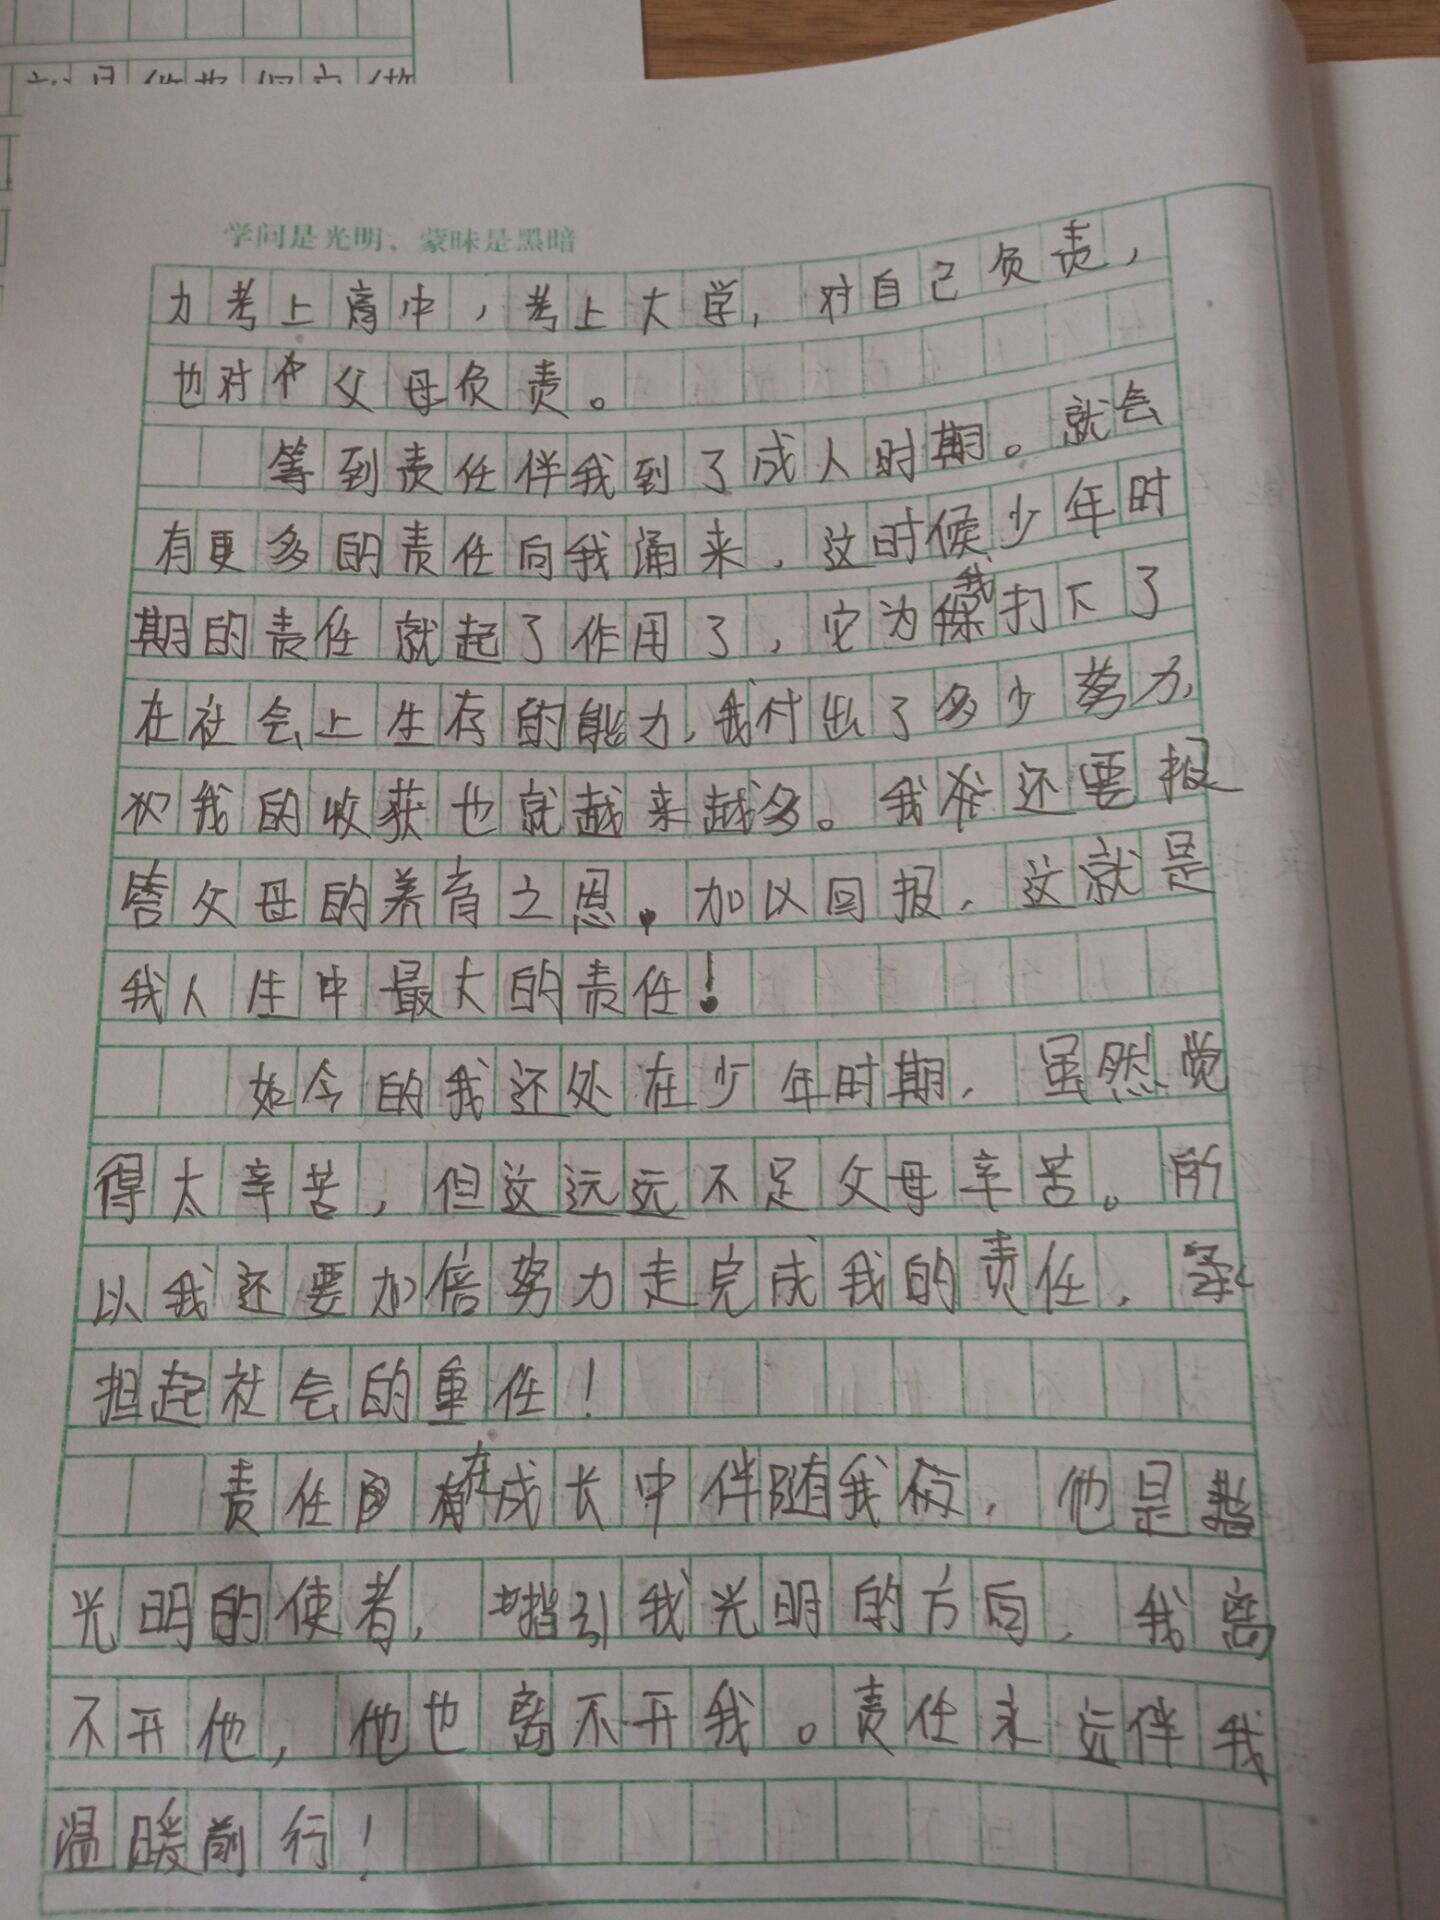 学问是光明，蒙昧是黑暗
力考上高中，考上大学，对自己负责，
也对父母负责。
等到责任伴我到了成人时期。就会
有更多的责任向我涌来，这时候少年时
期的责任就起了作用了，它为我打下了
在社会上生存的能力，我付出了多少努力，
我的收获也就越来越多。我还要报
答父母的养育之恩，加以回报，这就是
我人生中最大的责任！
如今的我还处在少年时期，虽然觉
得太辛苦，但这远远不足父母辛苦。所
以我还要加倍努力走完成我的责任，承
担起社会的重任！
责任在成长中伴随我，他是
光明的使者，指引我光明的方向，我离
不开他，他也离不开我。责任永远伴我
温暖前行！